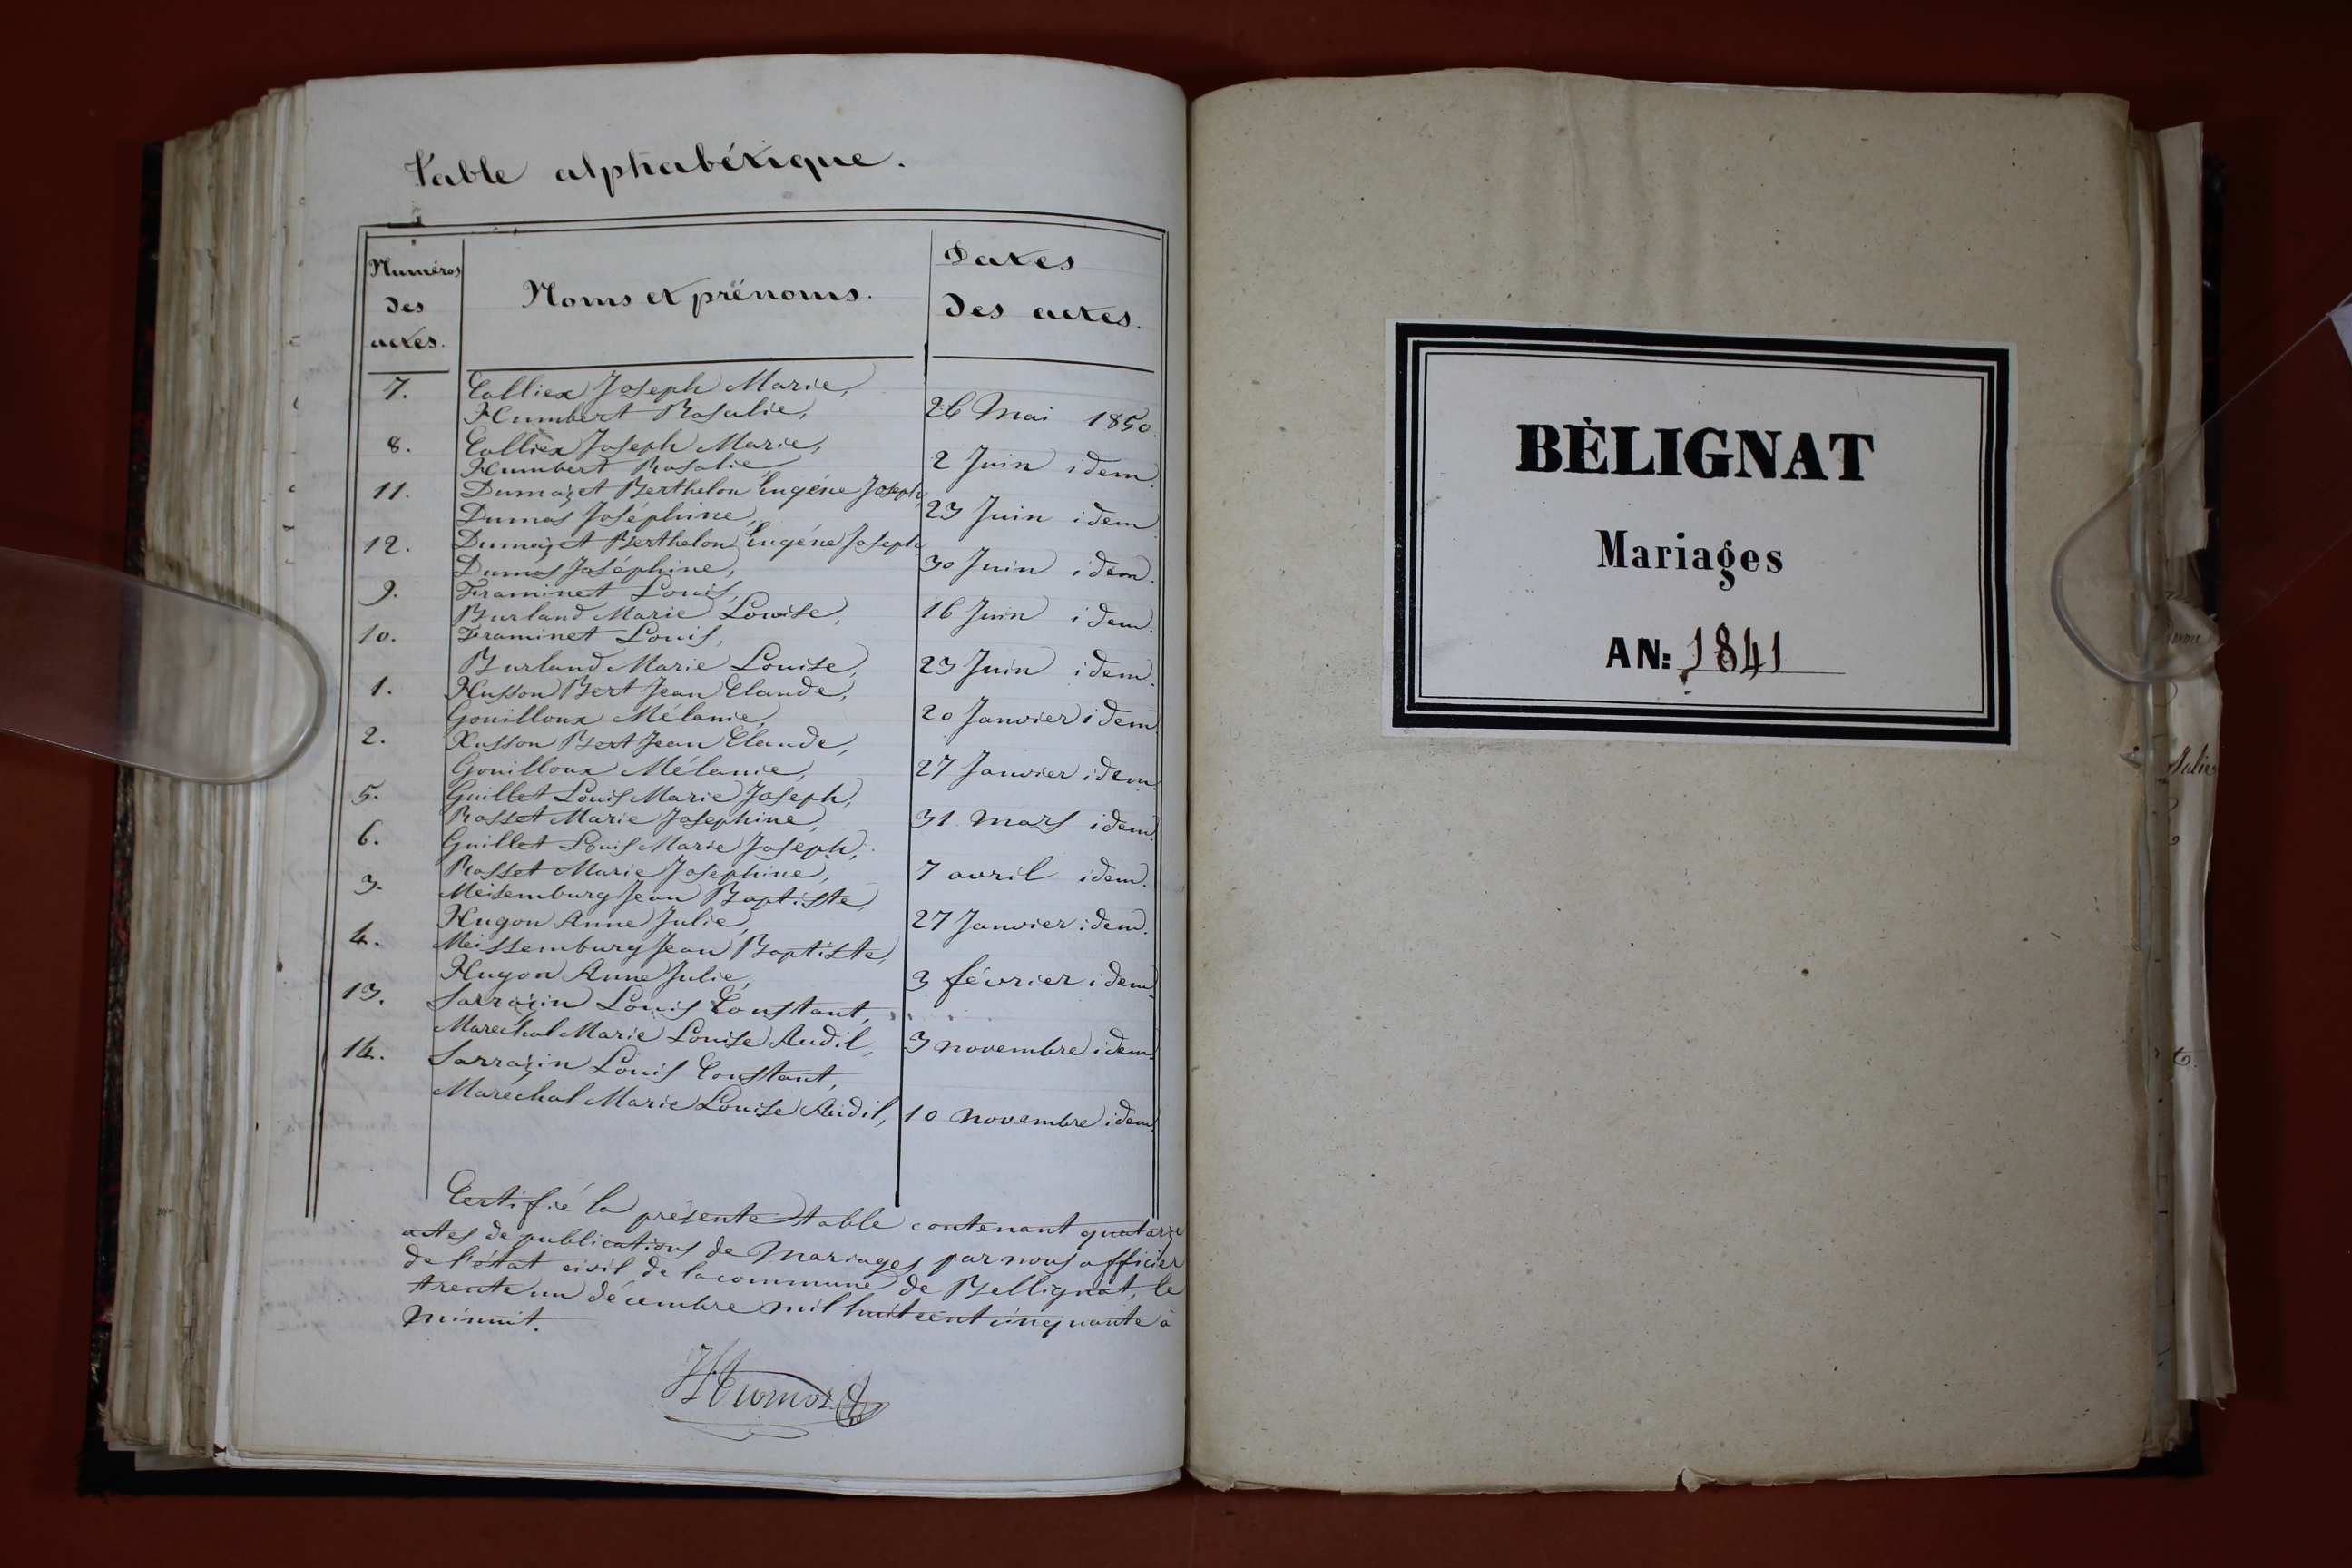 Table alphabétique.
Numéros
des
actes.
Noms et prénoms.
Dates
des actes.
7. Colliex Joseph Marie,
Humbert Rosalie, 26 Mai 1850.
8. Colliex Joseph Marie,
Humbert Rosalie 2 Juin idem.
11. Dumazet Berthelon Eugéne Joseph,
Dumas Joséphine, 23 Juin idem
12. Dumazet Berthelon Eugéne Joseph,
Dumas Joséphine, 30 Juin idem.
9. Framinet Louis,
Burland Marie Louise, 16 Juin idem.
10. Framinet Louis,
Burland Marie Louise, 23 Juin idem.
1. Husson Bert Jean Claude,
Gouilloux Mélanie, 20 Janvier idem
2. Husson Bert Jean Claude,
Gouilloux Mélanie, 27 Janvier idem.
5. Guillet Louis Marie Joseph,
Rosset Marie Josephine, 31 Mars idem.
6. Guillet Louis Marie Joseph,
Rosset Marie Josephine, 7 avril idem.
3. Meisemburg Jean Baptiste,
Hugon Anne Julie, 27 Janvier idem.
4. Meissemburg Jean Baptiste,
Hugon Anne Julie, 3 février idem.
13. Sarrazin Louis Constant,
Marechal Marie Louise Audil, 3 novembre idem.
14. Sarrazin Louis Constant,
Maréchal Marie Louise Audil, 10 novembre idem.
Certifié la présente table contenant quatorze
actes de publications de Mariages par nous officier
de l'état civil de la commune de Bellignat, le
trente un décembre mil huit cent cinquante à
Minuit.
BÈLIGNAT
Mariages
AN: 1841